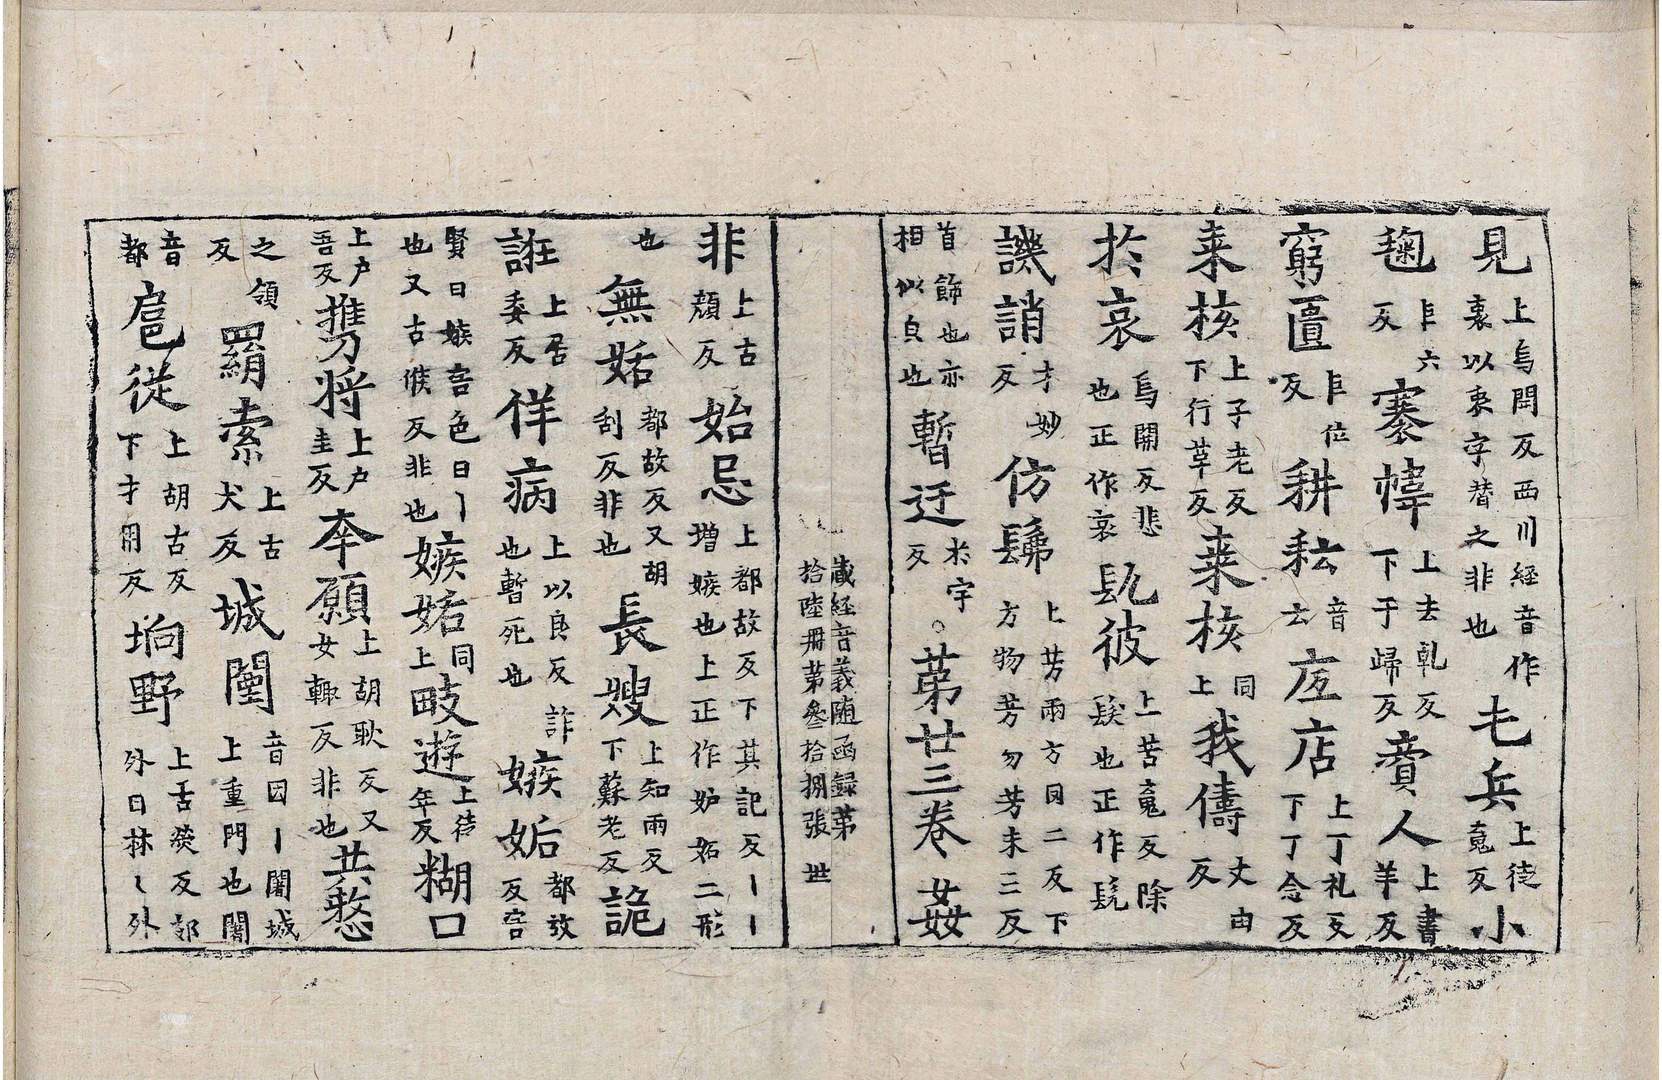 見上烏閞反西川經音作裛以哀字替之非也乇兵上徒竟反小
毱𠀐六反褰幃上去乹反下于歸反賣人上書羊反
窮匱𠀐位反耕耘音云㡳店上丁礼反下丁念反
棗核上子老反下行革反棗核同上我儔丈由反
扵哀烏開反悲也正作哀髡彼上苦䰟反除髮也正作髡
譏誚才妙反仿髴上芳兩方罔二反下方物芳勿芳未三反
首飾也亦相似皃也暫迂扵宇反。苐廿三卷姦
藏経音義随函録苐拾陸冊苐叄拾捌張 世
非上古顔反始忌上都故反下其記反丨丨增嫉也上正作妒妬二形
也無姡都故反又胡刮反非也長嫂上知兩反下蘇老反詭
誑上居委反佯病上以良反詐也暫死也嫉妬都故反害
賢曰嫉害色曰丨也又古候反非也嫉姡同上畋遊上徒年反糊口
上户吾反㩗将上户圭反夲願上胡耿反又女輙反非也共憗
之領反羂索上古犬反城闉音因丨闍城上重門也闍
音都扈從上胡古反下才用反坰野上古熒反郊外曰林〻外